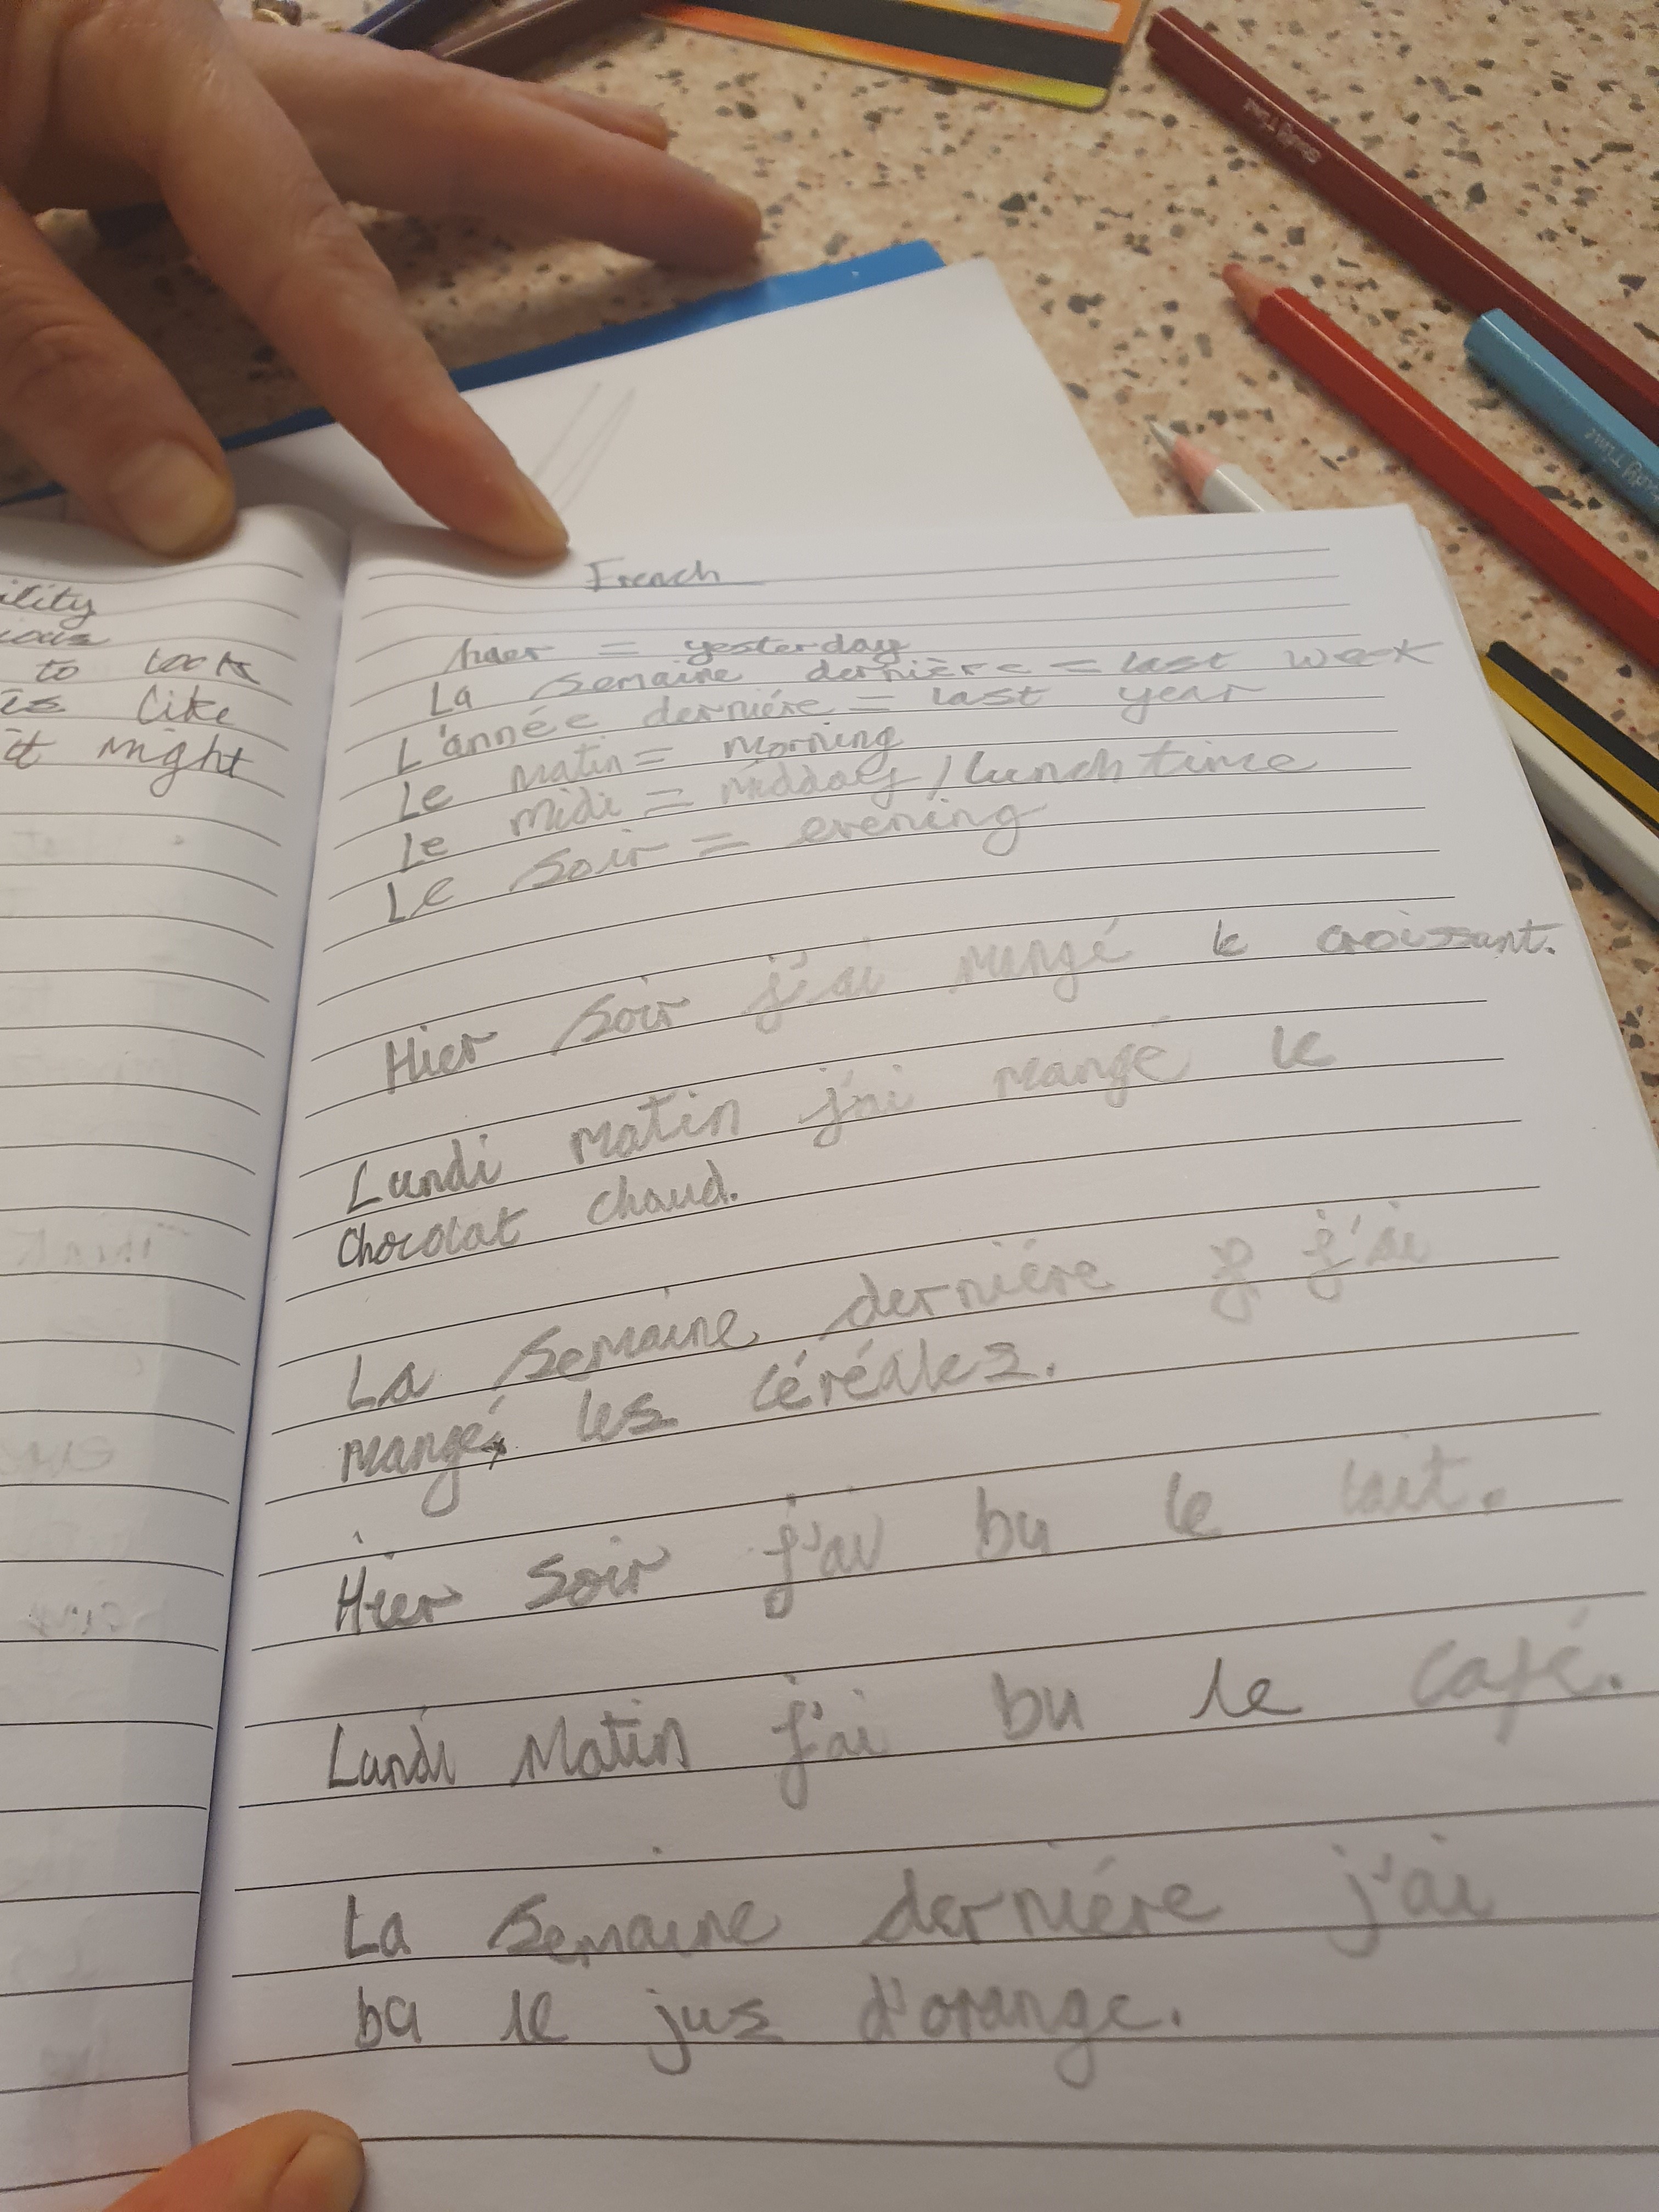 ility
to look
is like
it might
French
hier = yesterday
La semaine dernière = last week
L'année derniére = last year
Le matin = morning
Le midi = midday / lunch time
Le soir = evening
Hier soir j'ai mangé le croissant.
Lundi matin j'ai mangé le
chocolat chaud.
La semaine derniére j'ai
mangé les céréales.
Hier soir j'ai bu le lait.
Lundi Matin j'ai bu le café.
La semaine derniére j'ai
bu le jus d'orange.